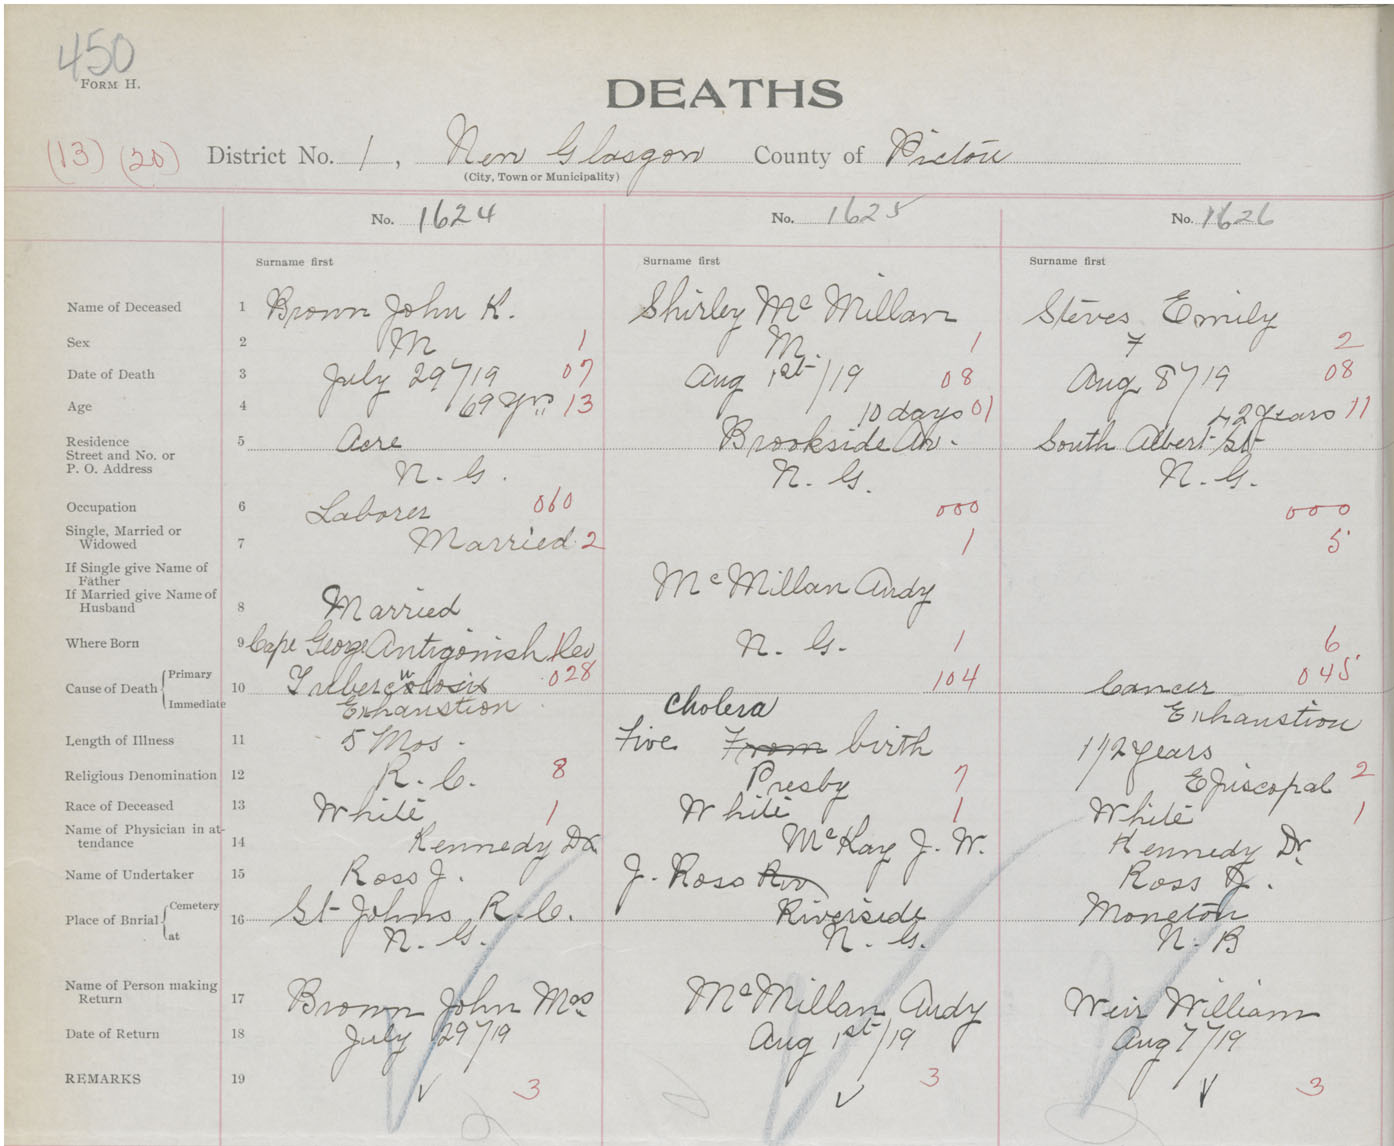 450
FORM H.
DEATHS
(13) (20) District No. 1, New Glasgow County of Pictou
(City, Town or Municipality)
No. 1624 No. 1625 No. 1626
Surname first Surname first Surname first
Name of Deceased 1 Brown John K. Shirley Mc Millan Steves Emily
Sex 2 M 1 M 1 F 2
Date of Death 3 July 29"/19 07 Aug 1st/19 08 Aug 8"/19 08
Age 4 69 Yrs 13 10 days 01 42 Years 11
Residence 5 Acre Brookside Av. South Albert St
Street and No. or
P. O. Address N. G. N. G. N. G.
Occupation 6 Laborer 060 000 000
Single, Married or
Widowed 7 Married 2 1 5
If Single give Name of
Father
If Married give Name of Mc Millan Andy
Husband 8 Married
Where Born 9 Cape George Antigonish 1 N. G. 1 6
Cause of Death { Primary 10 Tuberculosis 028 104 Cancer 045
Immediate Exhaustion Cholera Exhaustion
Length of Illness 11 5 Mos. Five From birth 1 1/2 years
Religious Denomination 12 R. C. 8 Presby 7 Episcopal 2
Race of Deceased 13 White 1 White 1 White 1
Name of Physician in at-
tendance 14 Kennedy Dr. McKay J. W. Kennedy Dr.
Name of Undertaker 15 Ross J. J. Ross Riv Ross J.
Place of Burial { Cemetery 16 St Johns R. C. Riverside Moncton
at N. G. N. G. N. B
Name of Person making
Return 17 Brown John Mrs McMillan Andy Weir William
Date of Return 18 July 29"/19 Aug 1st/19 Aug 7"/19
REMARKS 19 3 3 3